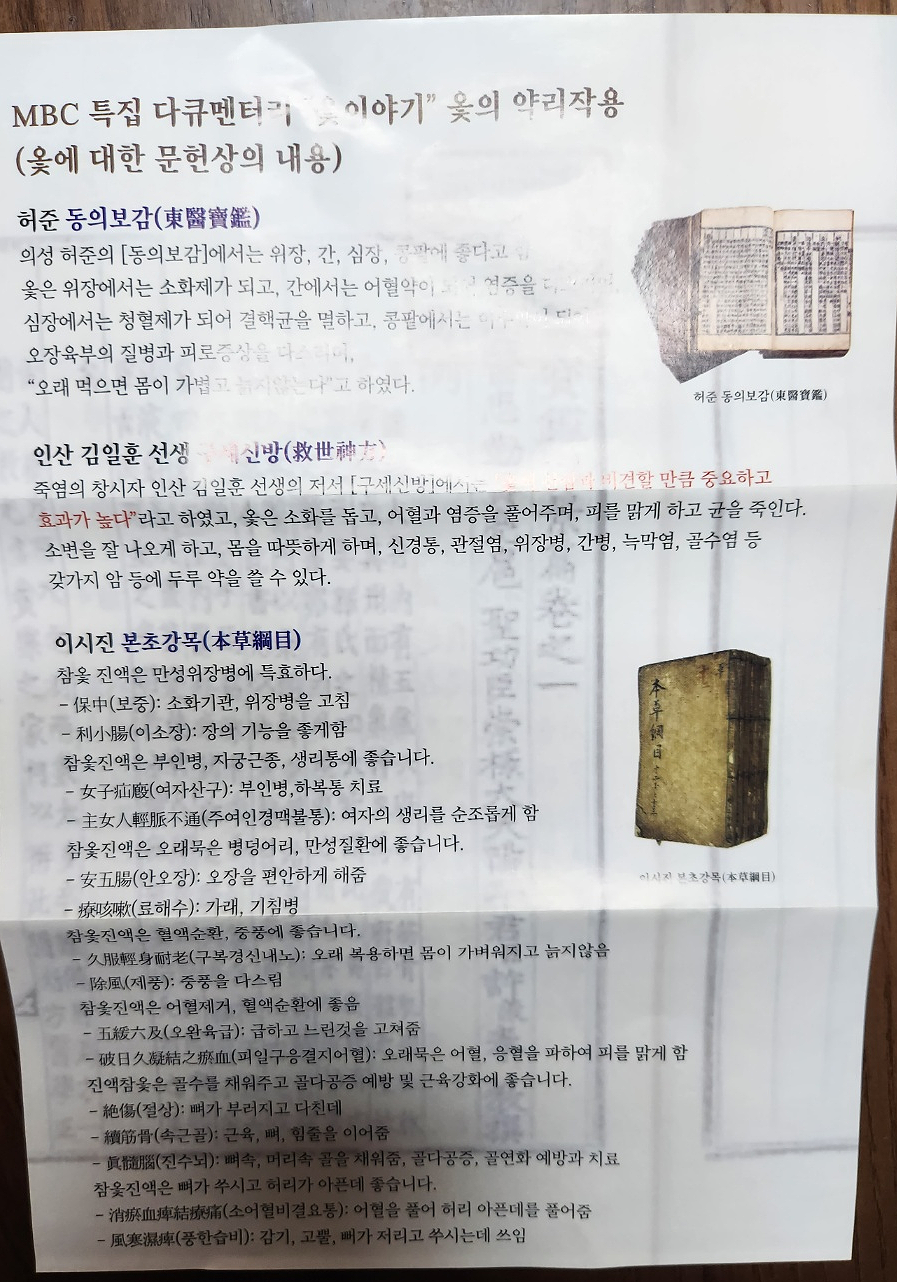 MBC 특집 다큐멘터리 "옻이야기" 옻의 약리작용
(옻에 대한 문헌상의 내용)
허준 동의보감(東醫寶鑑)
의성 허준의 [동의보감]에서는 위장, 간, 심장, 콩팥에 좋다고
옻은 위장에서는 소화제가 되고, 간에서는 어혈약이 되어 염증을
심장에서는 청혈제가 되어 결핵균을 멸하고, 콩팥에서는
오장육부의 질병과 피로증상을 다스리며,
"오래 먹으면 몸이 가볍고 늙지않는다"고 하였다.
허준 동의보감(東醫寶鑑)
인산 김일훈 선생 구세신방(救世神方)
죽염의 창시자 인산 김일훈 선생의 저서 [구세신방]에서는 비견할 만큼 중요하고
효과가 높다"라고 하였고, 옻은 소화를 돕고, 어혈과 염증을 풀어주며, 피를 맑게 하고 균을 죽인다.
소변을 잘 나오게 하고, 몸을 따뜻하게 하며, 신경통, 관절염, 위장병, 간병, 늑막염, 골수염 등
갖가지 암 등에 두루 약을 쓸 수 있다.
이시진 본초강목(本草綱目)
참옻 진액은 만성위장병에 특효하다.
– 保中(보중): 소화기관, 위장병을 고침
– 利小腸(이소장): 장의 기능을 좋게함
참옻진액은 부인병, 자궁근종, 생리통에 좋습니다.
– 女子疝廏(여자산구): 부인병,하복통 치료
– 主女人輕脈不通(주여인경맥불통): 여자의 생리를 순조롭게 함
참옻진액은 오래묵은 병덩어리, 만성질환에 좋습니다.
– 安五腸(안오장): 오장을 편안하게 해줌
– 療咳嗽(료해수): 가래, 기침병
참옻진액은 혈액순환, 중풍에 좋습니다.
– 久服輕身耐老(구복경신내노): 오래 복용하면 몸이 가벼워지고 늙지않음
– 除風(제풍): 중풍을 다스림
참옻진액은 어혈제거, 혈액순환에 좋음
– 五緩六及(오완육급): 급하고 느린것을 고쳐줌
– 破日久凝結之瘀血(파일구응결지어혈): 오래묵은 어혈, 응혈을 파하여 피를 맑게 함
진액참옻은 골수를 채워주고 골다공증 예방 및 근육강화에 좋습니다.
– 絶傷(절상): 뼈가 부러지고 다친데
– 續筋骨(속근골): 근육, 뼈, 힘줄을 이어줌
– 眞髓腦(진수뇌): 뼈속, 머리속 골을 채워줌, 골다공증, 골연화 예방과 치료
참옻진액은 뼈가 쑤시고 허리가 아픈데 좋습니다.
– 消瘀血痺結療痛(소어혈비결요통): 어혈을 풀어 허리 아픈데를 풀어줌
– 風寒濕痺(풍한습비): 감기, 고뿔, 뼈가 저리고 쑤시는데 쓰임
本草綱目
이시진 본초강목(本草綱目)